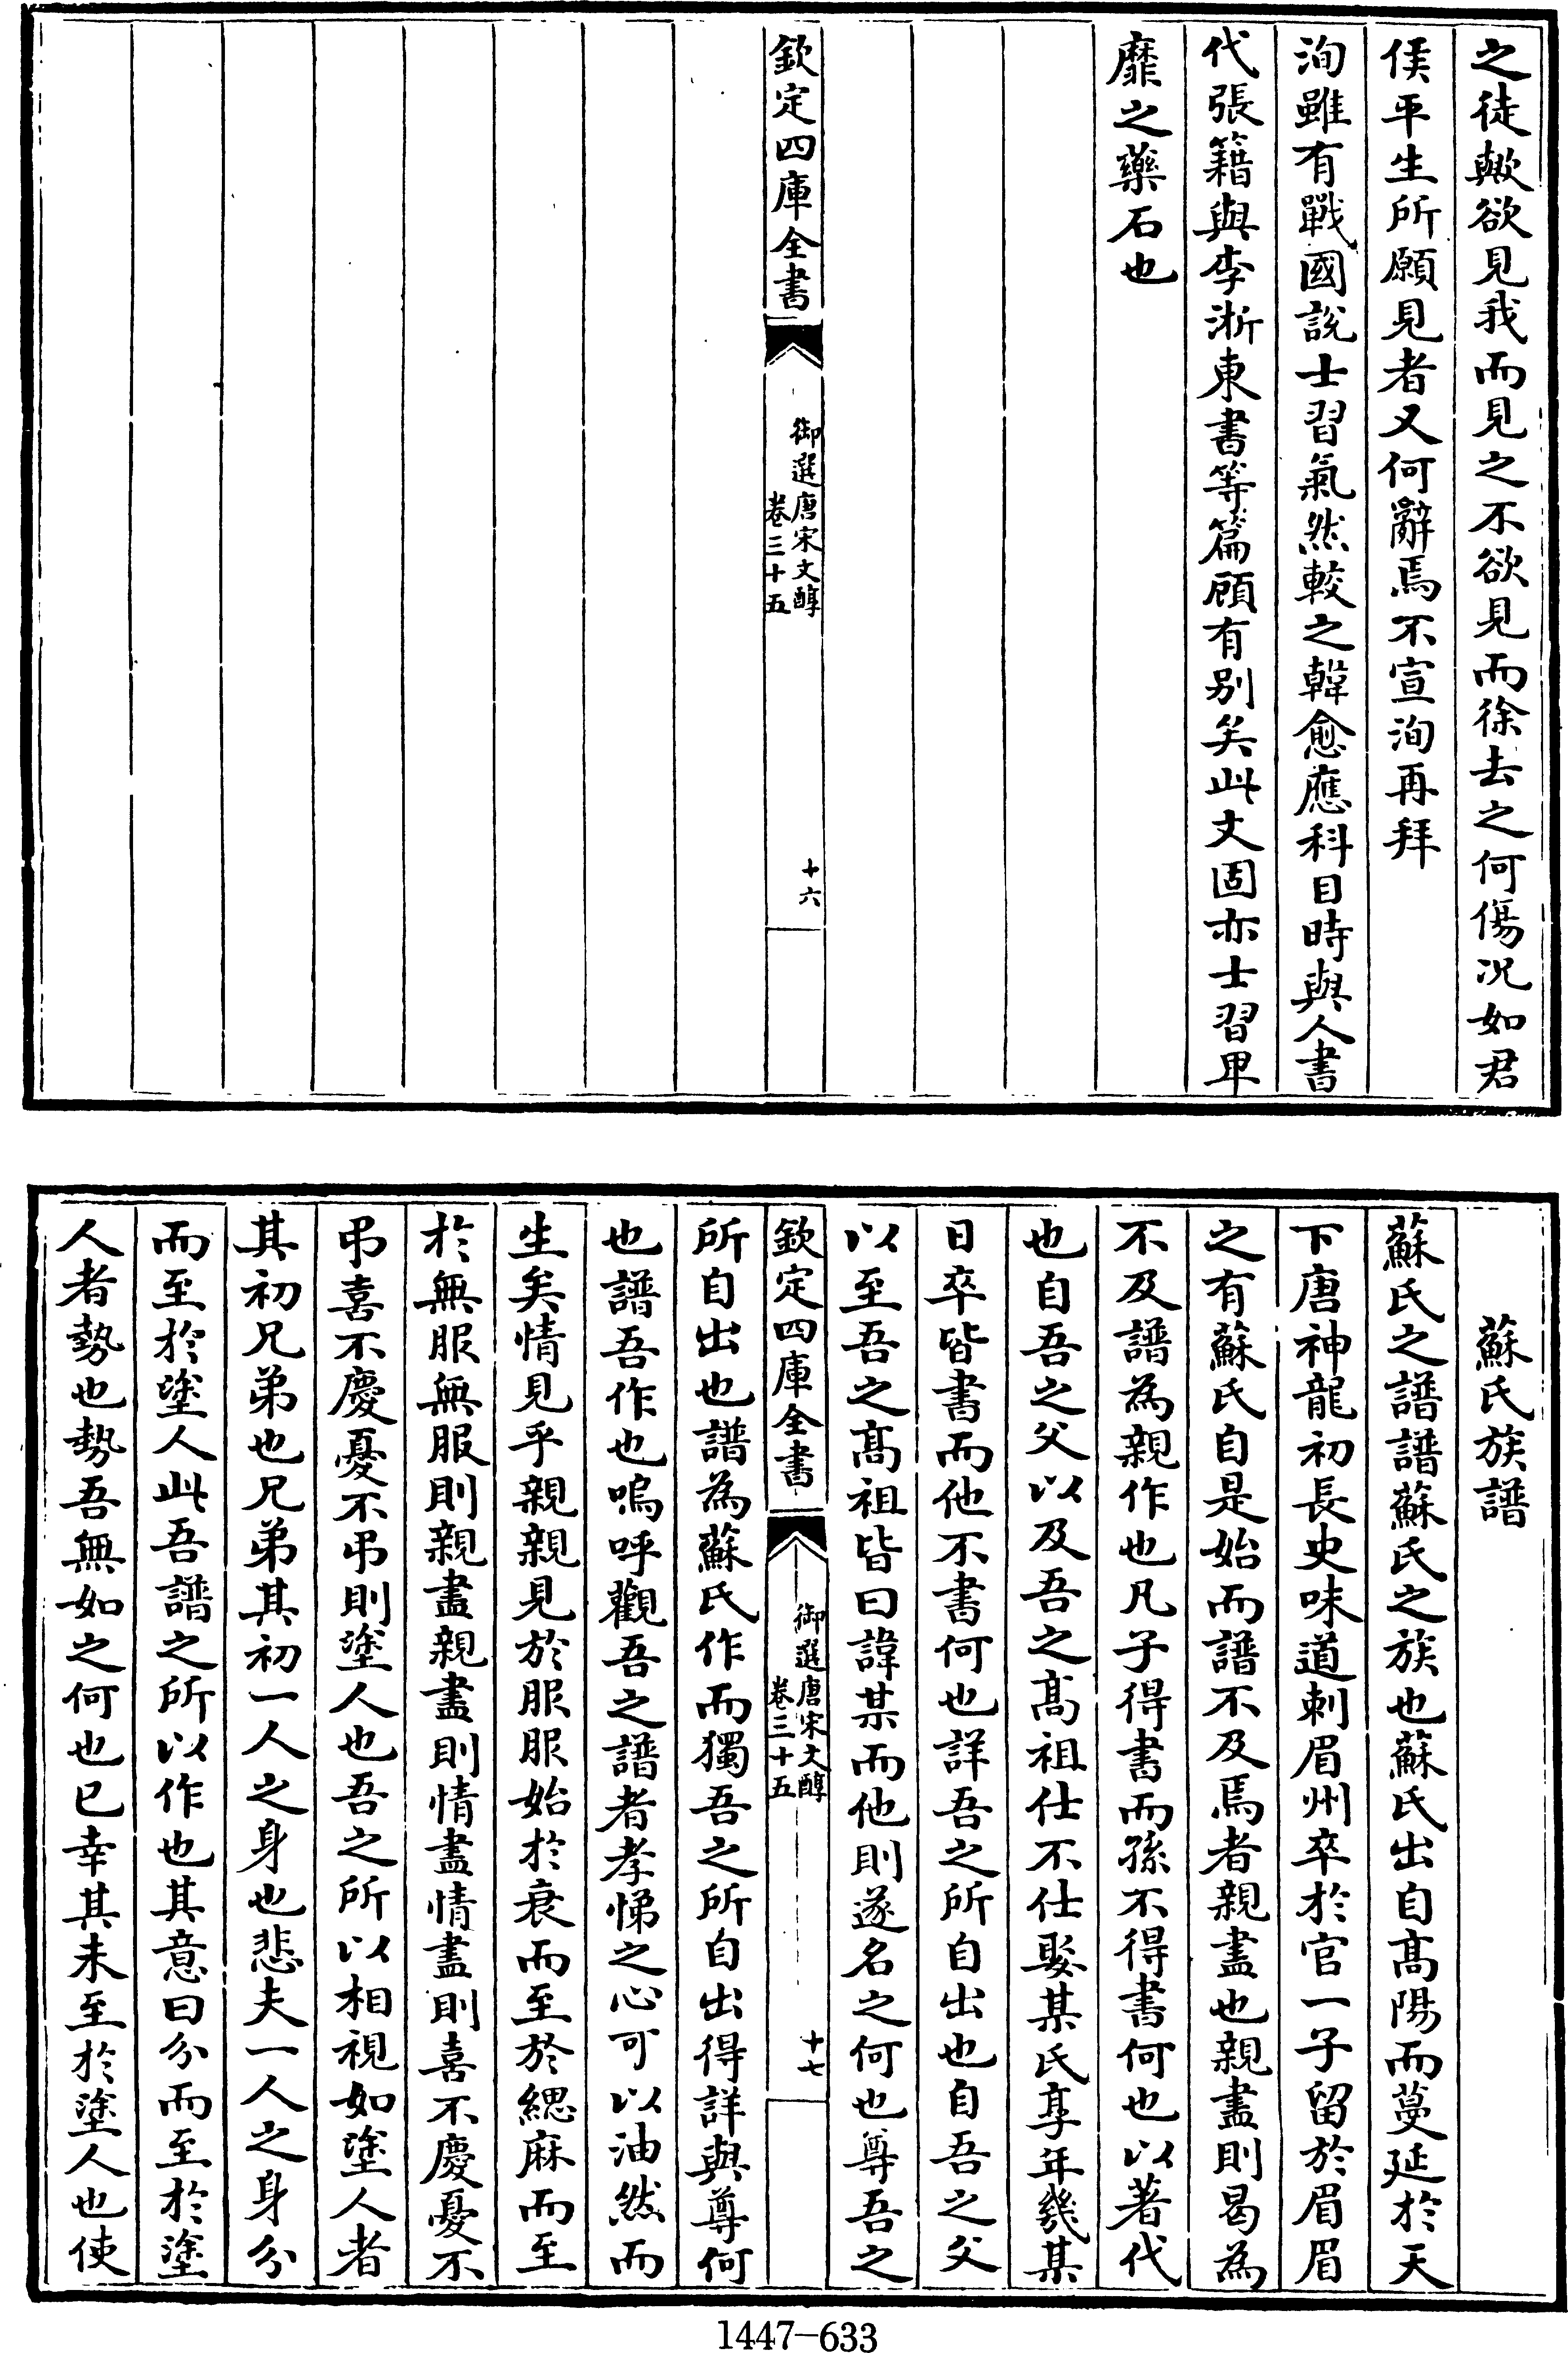 之徒歟欲見我而見之不欲見而徐去之何傷况如君
侯平生所願見者又何辭焉不宣洵再拜
洵雖有戰國說士習氣然較之韓愈應科目時與人書
代張籍與李浙東書等篇顧有别矣此文固亦士習卑
靡之藥石也
欽定四庫全書
御選唐宋文醇
卷三十五
十六
蘇氏族譜
蘇氏之譜譜蘇氏之族也蘇氏出自髙陽而蔓延於天
下唐神龍初長史味道刺眉州卒於官一子留於眉眉
之有蘇氏自是始而譜不及焉者親盡也親盡則曷為
不及譜為親作也凡子得書而孫不得書何也以著代
也自吾之父以及吾之髙祖仕不仕娶某氏享年幾某
日卒皆書而他不書何也詳吾之所自出也自吾之父
以至吾之髙祖皆曰諱某而他則遂名之何也尊吾之
欽定四庫全書
御選唐宋文醇
卷三十五
十七
所自出也譜為蘇氏作而獨吾之所自出得詳與尊何
也譜吾作也嗚呼觀吾之譜者孝悌之心可以油然而
生矣情見乎親親見於服服始於衰而至於緦麻而至
於無服無服則親盡親盡則情盡情盡則喜不慶憂不
弔喜不慶憂不弔則塗人也吾之所以相視如塗人者
其初兄弟也兄弟其初一人之身也悲夫一人之身分
而至於塗人此吾譜之所以作也其意曰分而至於塗
人者勢也勢吾無如之何也已幸其未至於塗人也使
1447-633